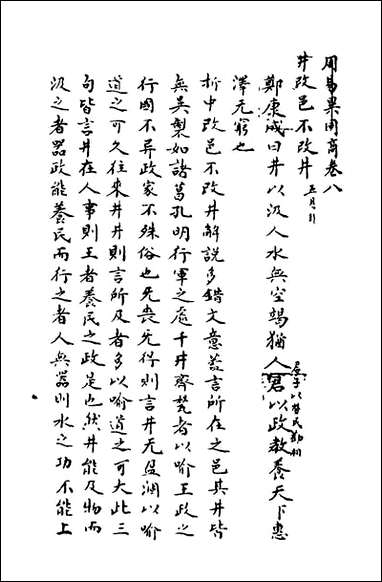 周易果閒商卷八
井改邑不改井 五月
鄭康成曰井以汲人水無空竭猶人君以政教養天下惠
澤无窮也
折中改邑不改井解說多錯文意葢言所在之邑其井皆
無異製如諸葛孔明行軍之處千井齊甃者以喻王政之
行國不異政家不殊俗也无喪无得則言井无盈涸以喻
道之可久往來井井則言所及者多以喻道之可大此三
句皆言井在人事則王者養民之政是也然井能及物而
汲之者器政能養民而行之者人無器則水之功不能上